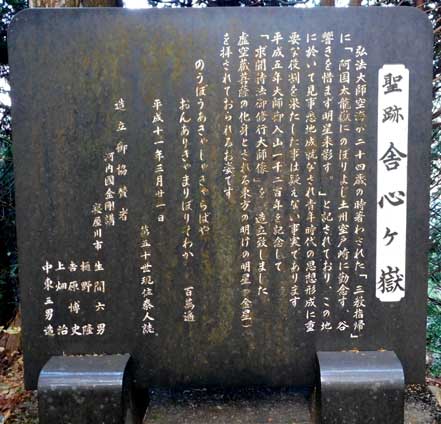 聖跡 舎心ヶ嶽
弘法大師空海が二十四歳の時著わされた「三教指帰」
に「阿国太龍嶽にのぼりよじ土州室戸崎に勤念す、谷
響きを惜まず明星来影す。」と記されており、この地
に於いて見事悉地成就なされ青年時代の思想形成に重
要な役割を果たした事は疑えない事実であります
平成五年大師御入山一千二百年を記念して
「求聞持法御修行大師像」を造立致しました
虚空蔵菩薩の化身とされる東方の明けの明星（金星）
を拝されておられるお姿です
のうぼうあきゃしゃきゃらばや
おんありきゃまりぼりそわか 百萬遍
平成十一年三月廿一日
第五十世現住泰人誌
造立御協賛者
河内国金剛講
寝屋川市
生間六男
植野隆
吉原博史
上畑治
中東三男造